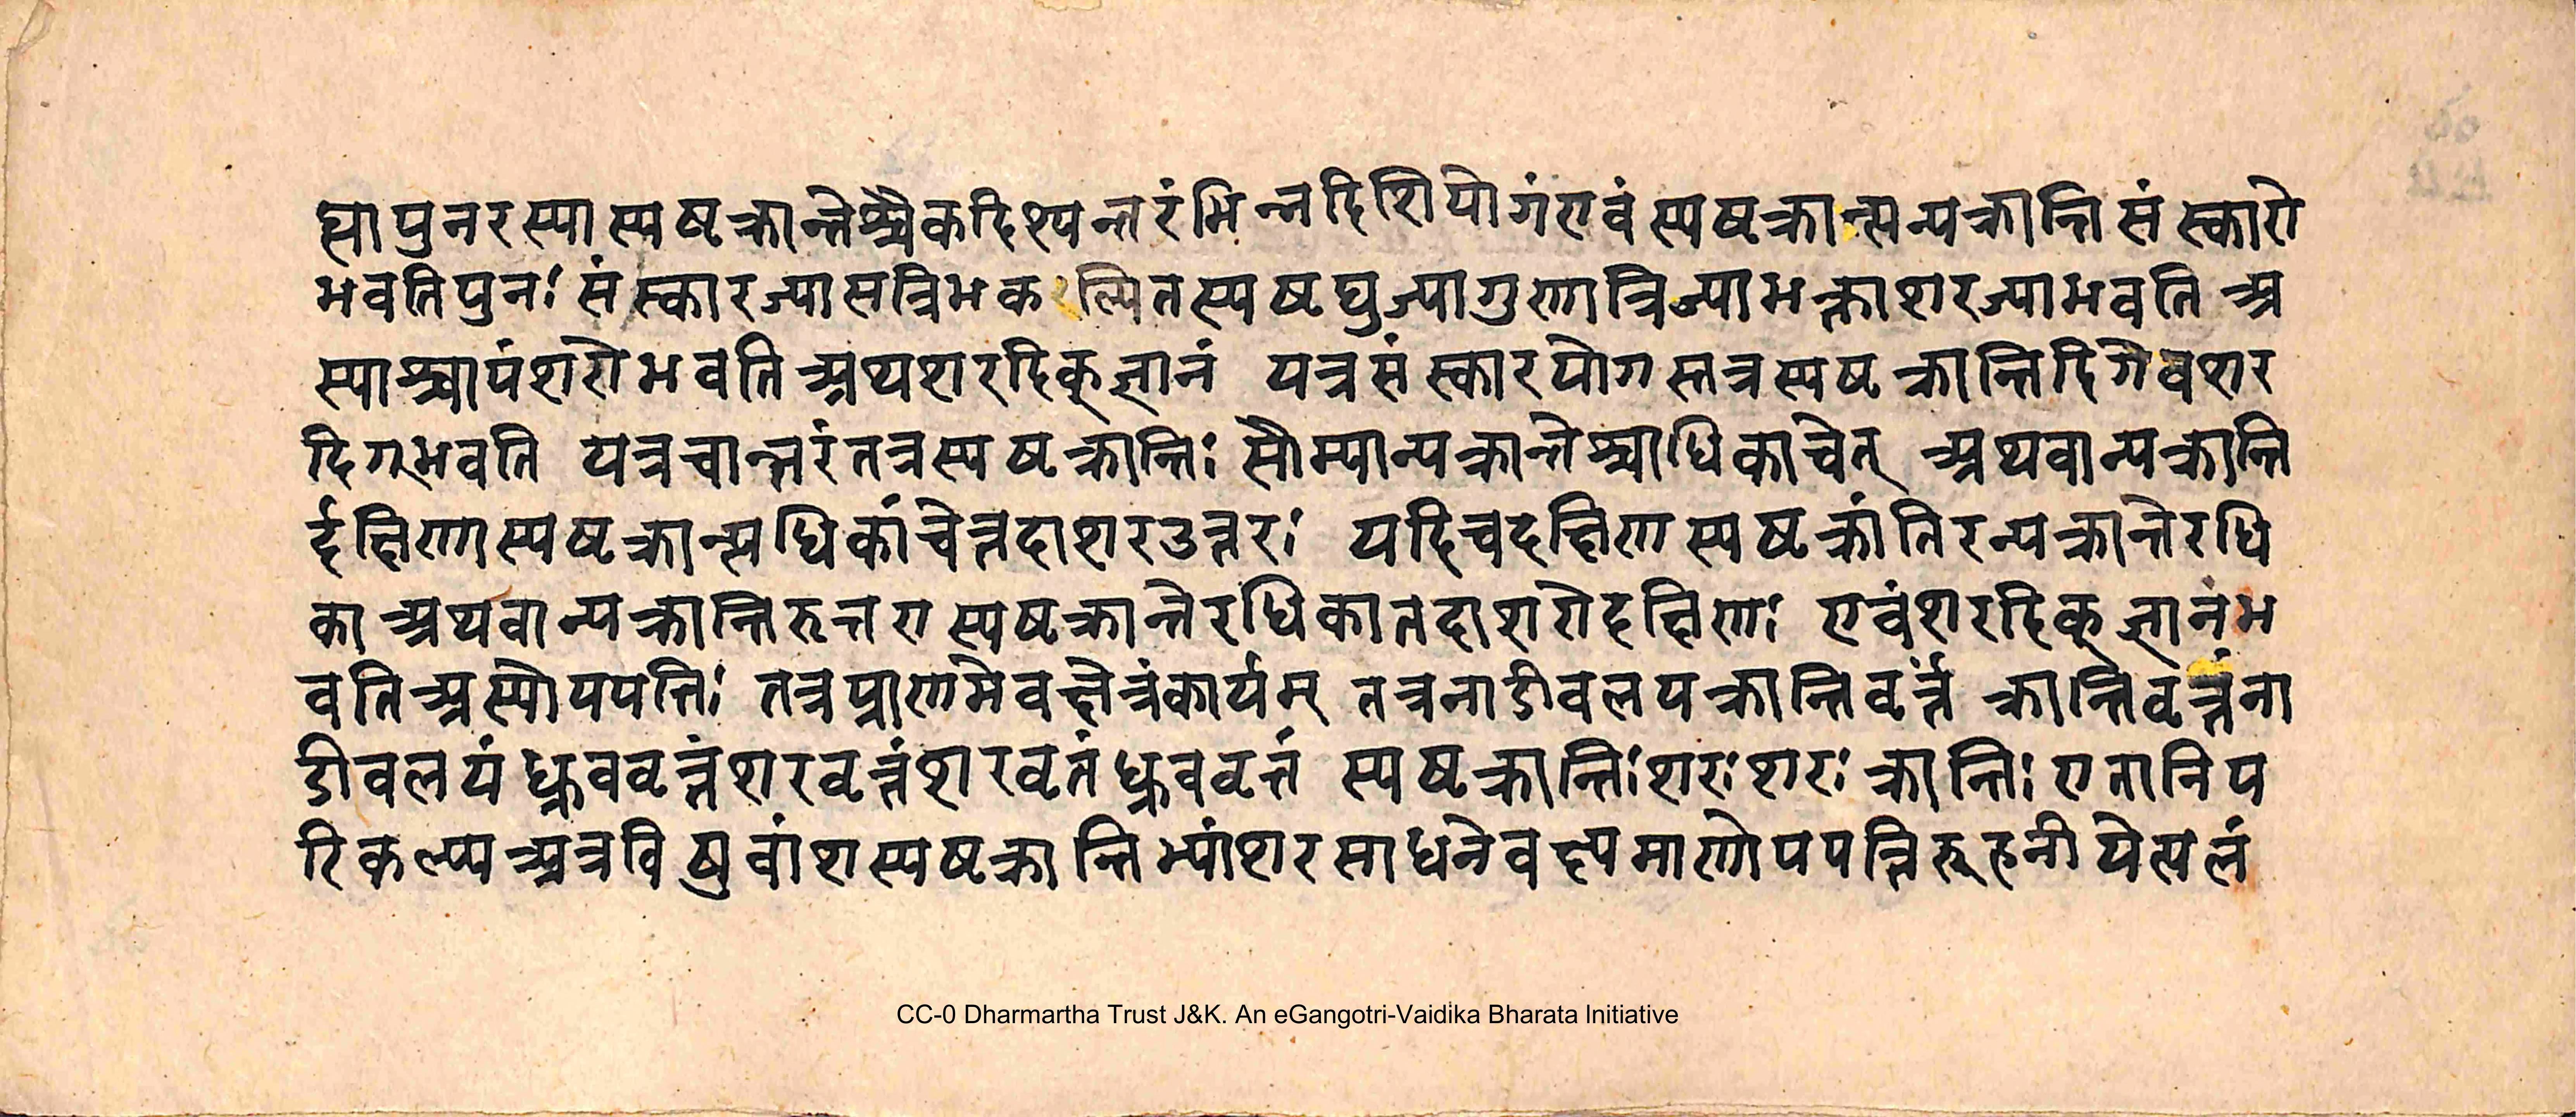 ह्या पुनरस्या स्पष्टक्रान्तेश्चैकदिश्यन्तरं भिन्नदिशि योगं एवं स्पष्टक्रान्त्यन्यक्रान्ति संस्कारो
भवति पुनः संस्कारज्या सत्रिभकल्पित स्पष्टद्युज्यागुणा त्रिज्याभक्ता शरज्या भवति अ
स्याश्चापं शरो भवति अथ शरदिक्ज्ञानं यत्र संस्कारयोगस्तत्र स्पष्टक्रान्तिदिगेव शर
दिग्भवति यत्र चान्तरं तत्र स्पष्टक्रान्तिः सौम्यान्यक्रान्तेश्चाधिका चेत् अथवान्यक्रान्ति
र्दक्षिणा स्पष्टक्रान्त्यधिकां चेत्तदा शर उत्तरः यदि च दक्षिण स्पष्टक्रांतिरन्यक्रान्तेरधि
का अथवान्यक्रान्तिरुत्तरा स्पष्टक्रान्तेरधिका तदा शरो दक्षिणः एवं शरदिक्ज्ञानं भ
वति अस्योपपत्तिः तत्र प्राणमेव क्षेत्रं कार्यम् तत्र नाडीवलय क्रान्तिवृत्तं क्रान्तिवृत्तं ना
डीवलयं ध्रुववृत्तं शरवृत्तं शरवृतं ध्रुववृत्तं स्पष्टक्रान्तिः शरः शरः क्रान्तिः एतानि प
रिकल्प्य अत्र विषुवांश स्पष्टक्रान्तिभ्यां शरसाधने वक्ष्यमाणोपपत्तिरूहनीयेत्यलं
CC-0 Dharmartha Trust J&K. An eGangotri-Vaidika Bharata Initiative